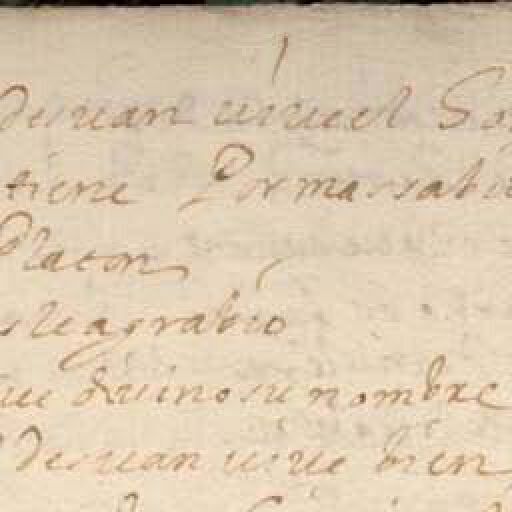 desuan uiuuel So
tiene Por mas sabi
Platon
sleagrabio
ue diuino su nombre
desuan uiue bien